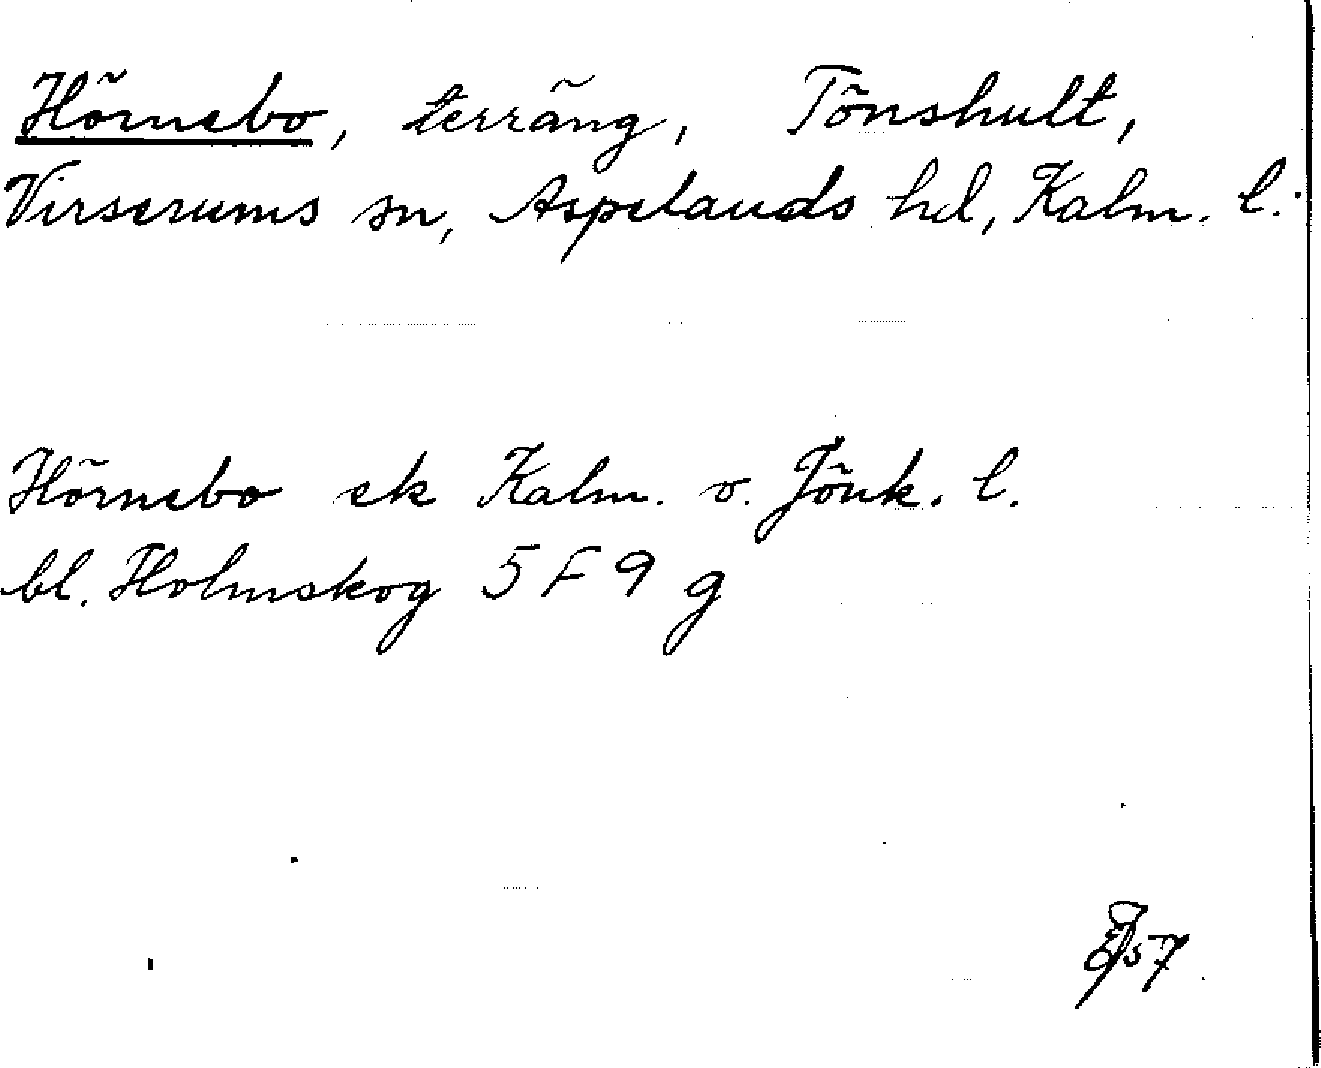 Hörnebo, terräng, Tönshult,
Virserums sn, Aspelands hd, Kalm. l.
Hörnebo ek Kalm. o. Jönk. l.
bl. Holmskog 5 F 9 g
57